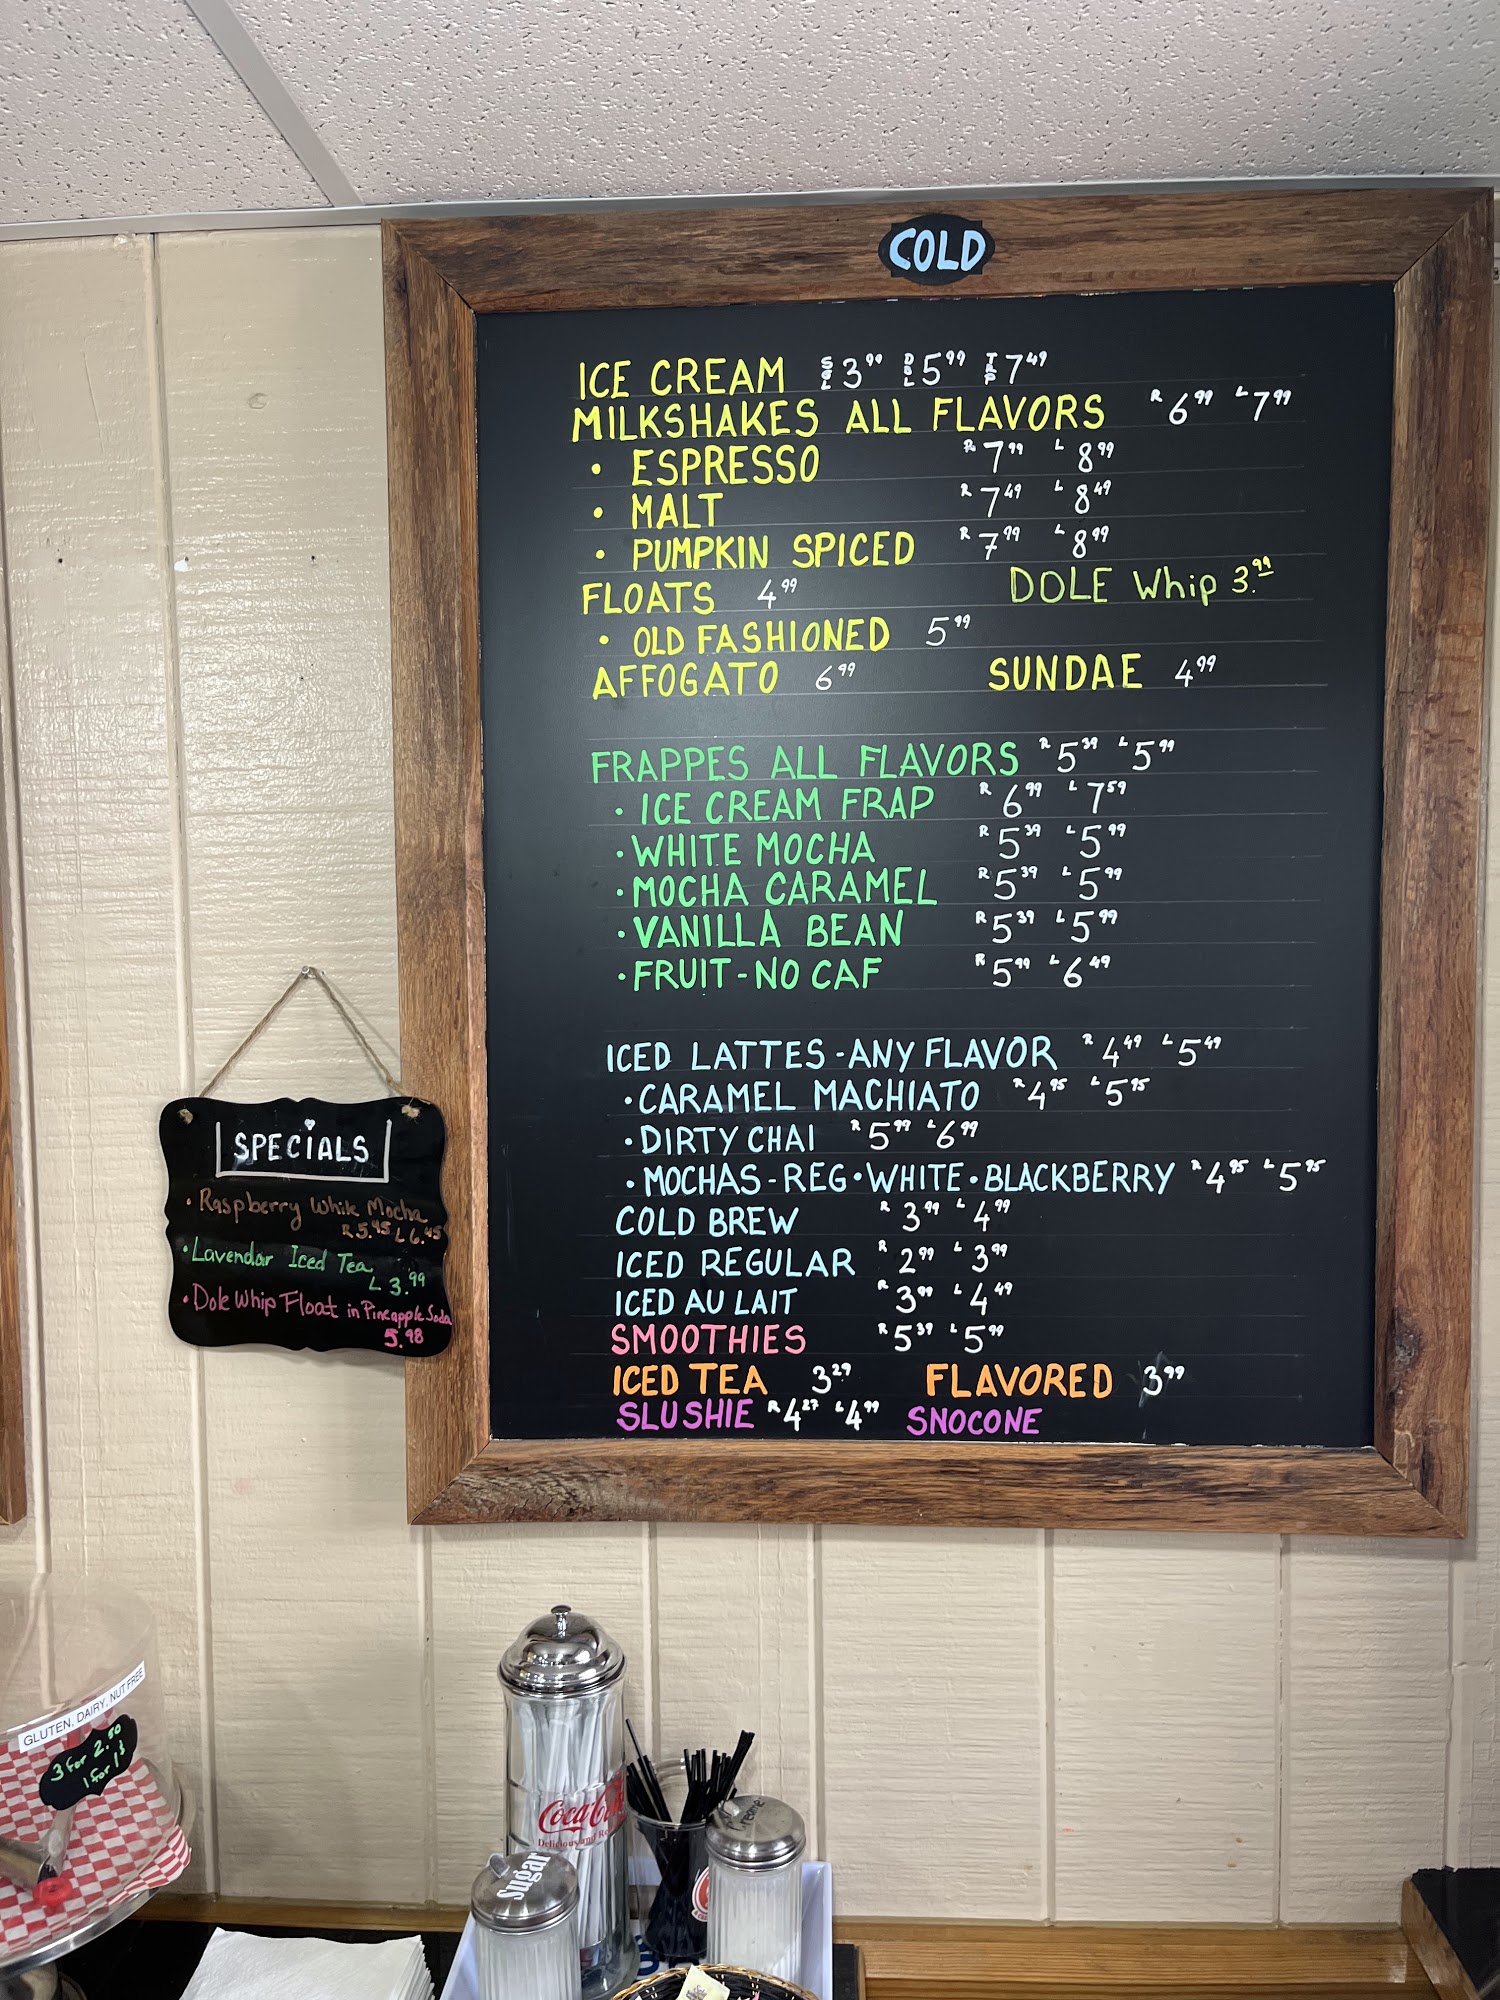 COLD
ICE CREAM SGL 3.99 DBL 5.99 TRP 7.49
MILKSHAKES ALL FLAVORS R 6.99 L 7.99
• ESPRESSO R 7.99 L 8.99
• MALT R 7.49 L 8.49
• PUMPKIN SPICED R 7.99 L 8.99
FLOATS 4.99 DOLE Whip 3.99
• OLD FASHIONED 5.99
AFFOGATO 6.99 SUNDAE 4.99
FRAPPES ALL FLAVORS R 5.39 L 5.99
• ICE CREAM FRAP R 6.99 L 7.59
• WHITE MOCHA R 5.39 L 5.99
• MOCHA CARAMEL R 5.39 L 5.99
• VANILLA BEAN R 5.39 L 5.99
• FRUIT-NO CAF R 5.99 L 6.49
ICED LATTES-ANY FLAVOR R 4.49 L 5.49
• CARAMEL MACHIATO R 4.95 L 5.95
• DIRTY CHAI R 5.99 L 6.99
• MOCHAS-REG•WHITE•BLACKBERRY R 4.95 L 5.95
COLD BREW R 3.99 L 4.99
ICED REGULAR R 2.99 L 3.99
ICED AU LAIT R 3.99 L 4.49
SMOOTHIES R 5.39 L 5.99
ICED TEA 3.29 FLAVORED 3.99
SLUSHIE R 4.27 L 4.99 SNOCONE
SPECIALS
• Raspberry White Mocha
R 5.45 L 6.45
• Lavendar Iced Tea
L 3.99
• Dole Whip Float in Pineapple Soda
5.98
GLUTEN, DAIRY, NUT FREE
3 for 2.50
1 for 1$
Coca-Cola
Delicious and Re
Sugar
Creamer